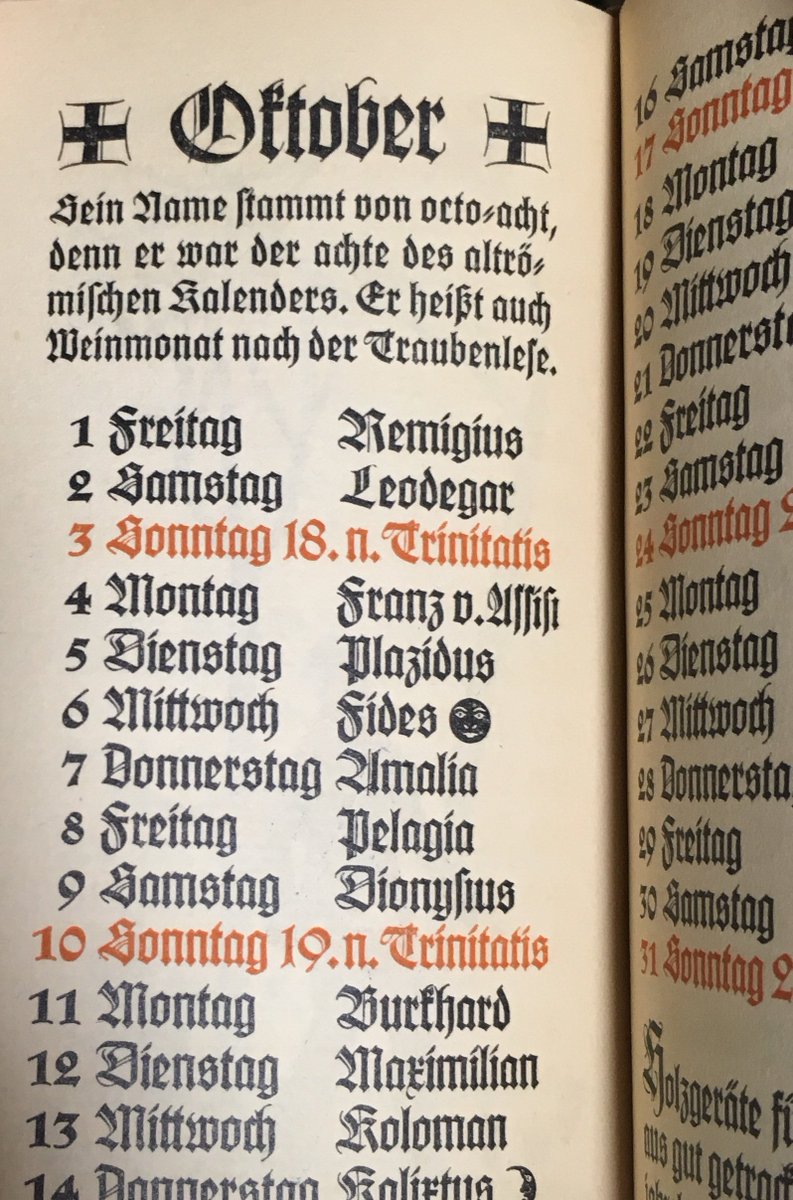 Oktober
Sein Name stammt von octo-acht,
denn er war der achte des altrö-
mischen Kalenders. Er heißt auch
Weinmonat nach der Traubenlese.
1 Freitag Remigius
2 Samstag Leodegar
3 Sonntag 18. n. Trinitatis
4 Montag Franz v. Assisi
5 Dienstag Plazidus
6 Mittwoch Fides
7 Donnerstag Amalia
8 Freitag Pelagia
9 Samstag Dionysius
10 Sonntag 19. n. Trinitatis
11 Montag Burkhard
12 Dienstag Maximilian
13 Mittwoch Koloman
14 Donnerstag Kalixtus
16 Samstag
17 Sonntag
18 Montag
19 Dienstag
20 Mittwoch
21 Donnersta
22 Freitag
23 Samstag
24 Sonntag 2
25 Montag
26 Dienstag
27 Mittwoch
28 Donnersta
29 Freitag
30 Samstag
31 Sonntag 2
Holzgeräte fü
aus gut getrock